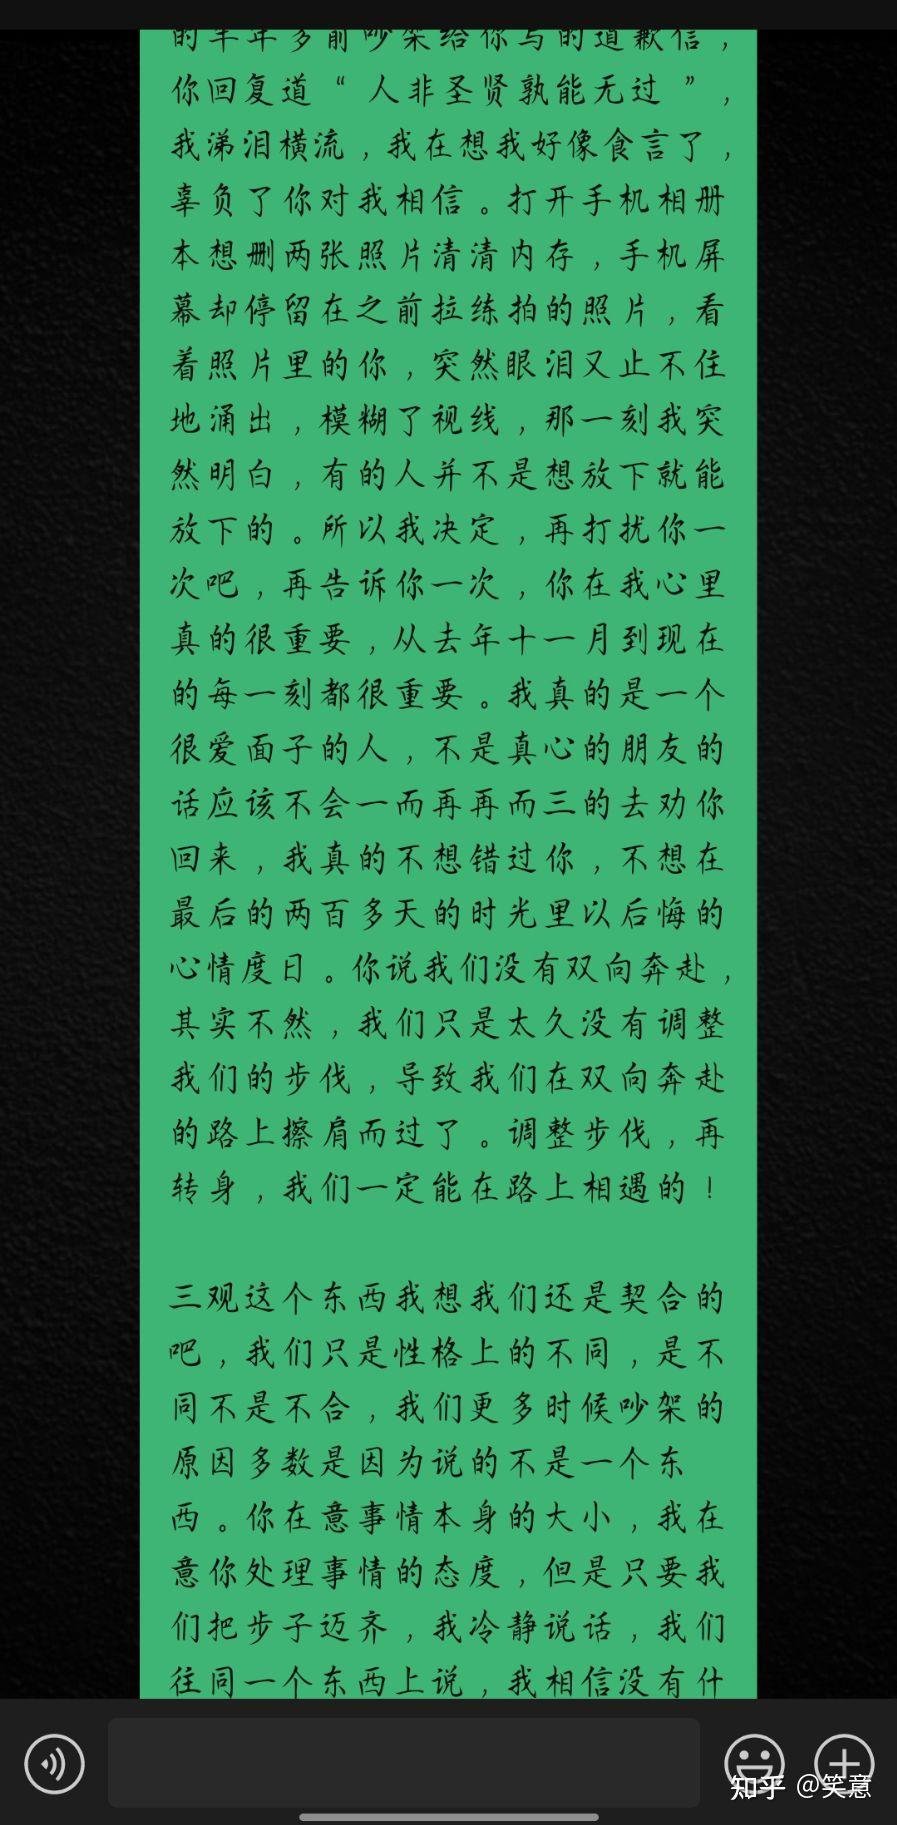 的半年多前吵架给你写的道歉信，
你回复道“人非圣贤孰能无过”，
我涕泪横流，我在想我好像食言了，
辜负了你对我相信。打开手机相册
本想删两张照片清清内存，手机屏
幕却停留在之前拉练拍的照片，看
着照片里的你，突然眼泪又止不住
地涌出，模糊了视线，那一刻我突
然明白，有的人并不是想放下就能
放下的。所以我决定，再打扰你一
次吧，再告诉你一次，你在我心里
真的很重要，从去年十一月到现在
的每一刻都很重要。我真的是一个
很爱面子的人，不是真心的朋友的
话应该不会一而再再而三的去劝你
回来，我真的不想错过你，不想在
最后的两百多天的时光里以后悔的
心情度日。你说我们没有双向奔赴，
其实不然，我们只是太久没有调整
我们的步伐，导致我们在双向奔赴
的路上擦肩而过了。调整步伐，再
转身，我们一定能在路上相遇的！
三观这个东西我想我们还是契合的
吧，我们只是性格上的不同，是不
同不是不合，我们更多时候吵架的
原因多数是因为说的不是一个东
西。你在意事情本身的大小，我在
意你处理事情的态度，但是只要我
们把步子迈齐，我冷静说话，我们
往同一个东西上说，我相信没有什
知乎 @笑意